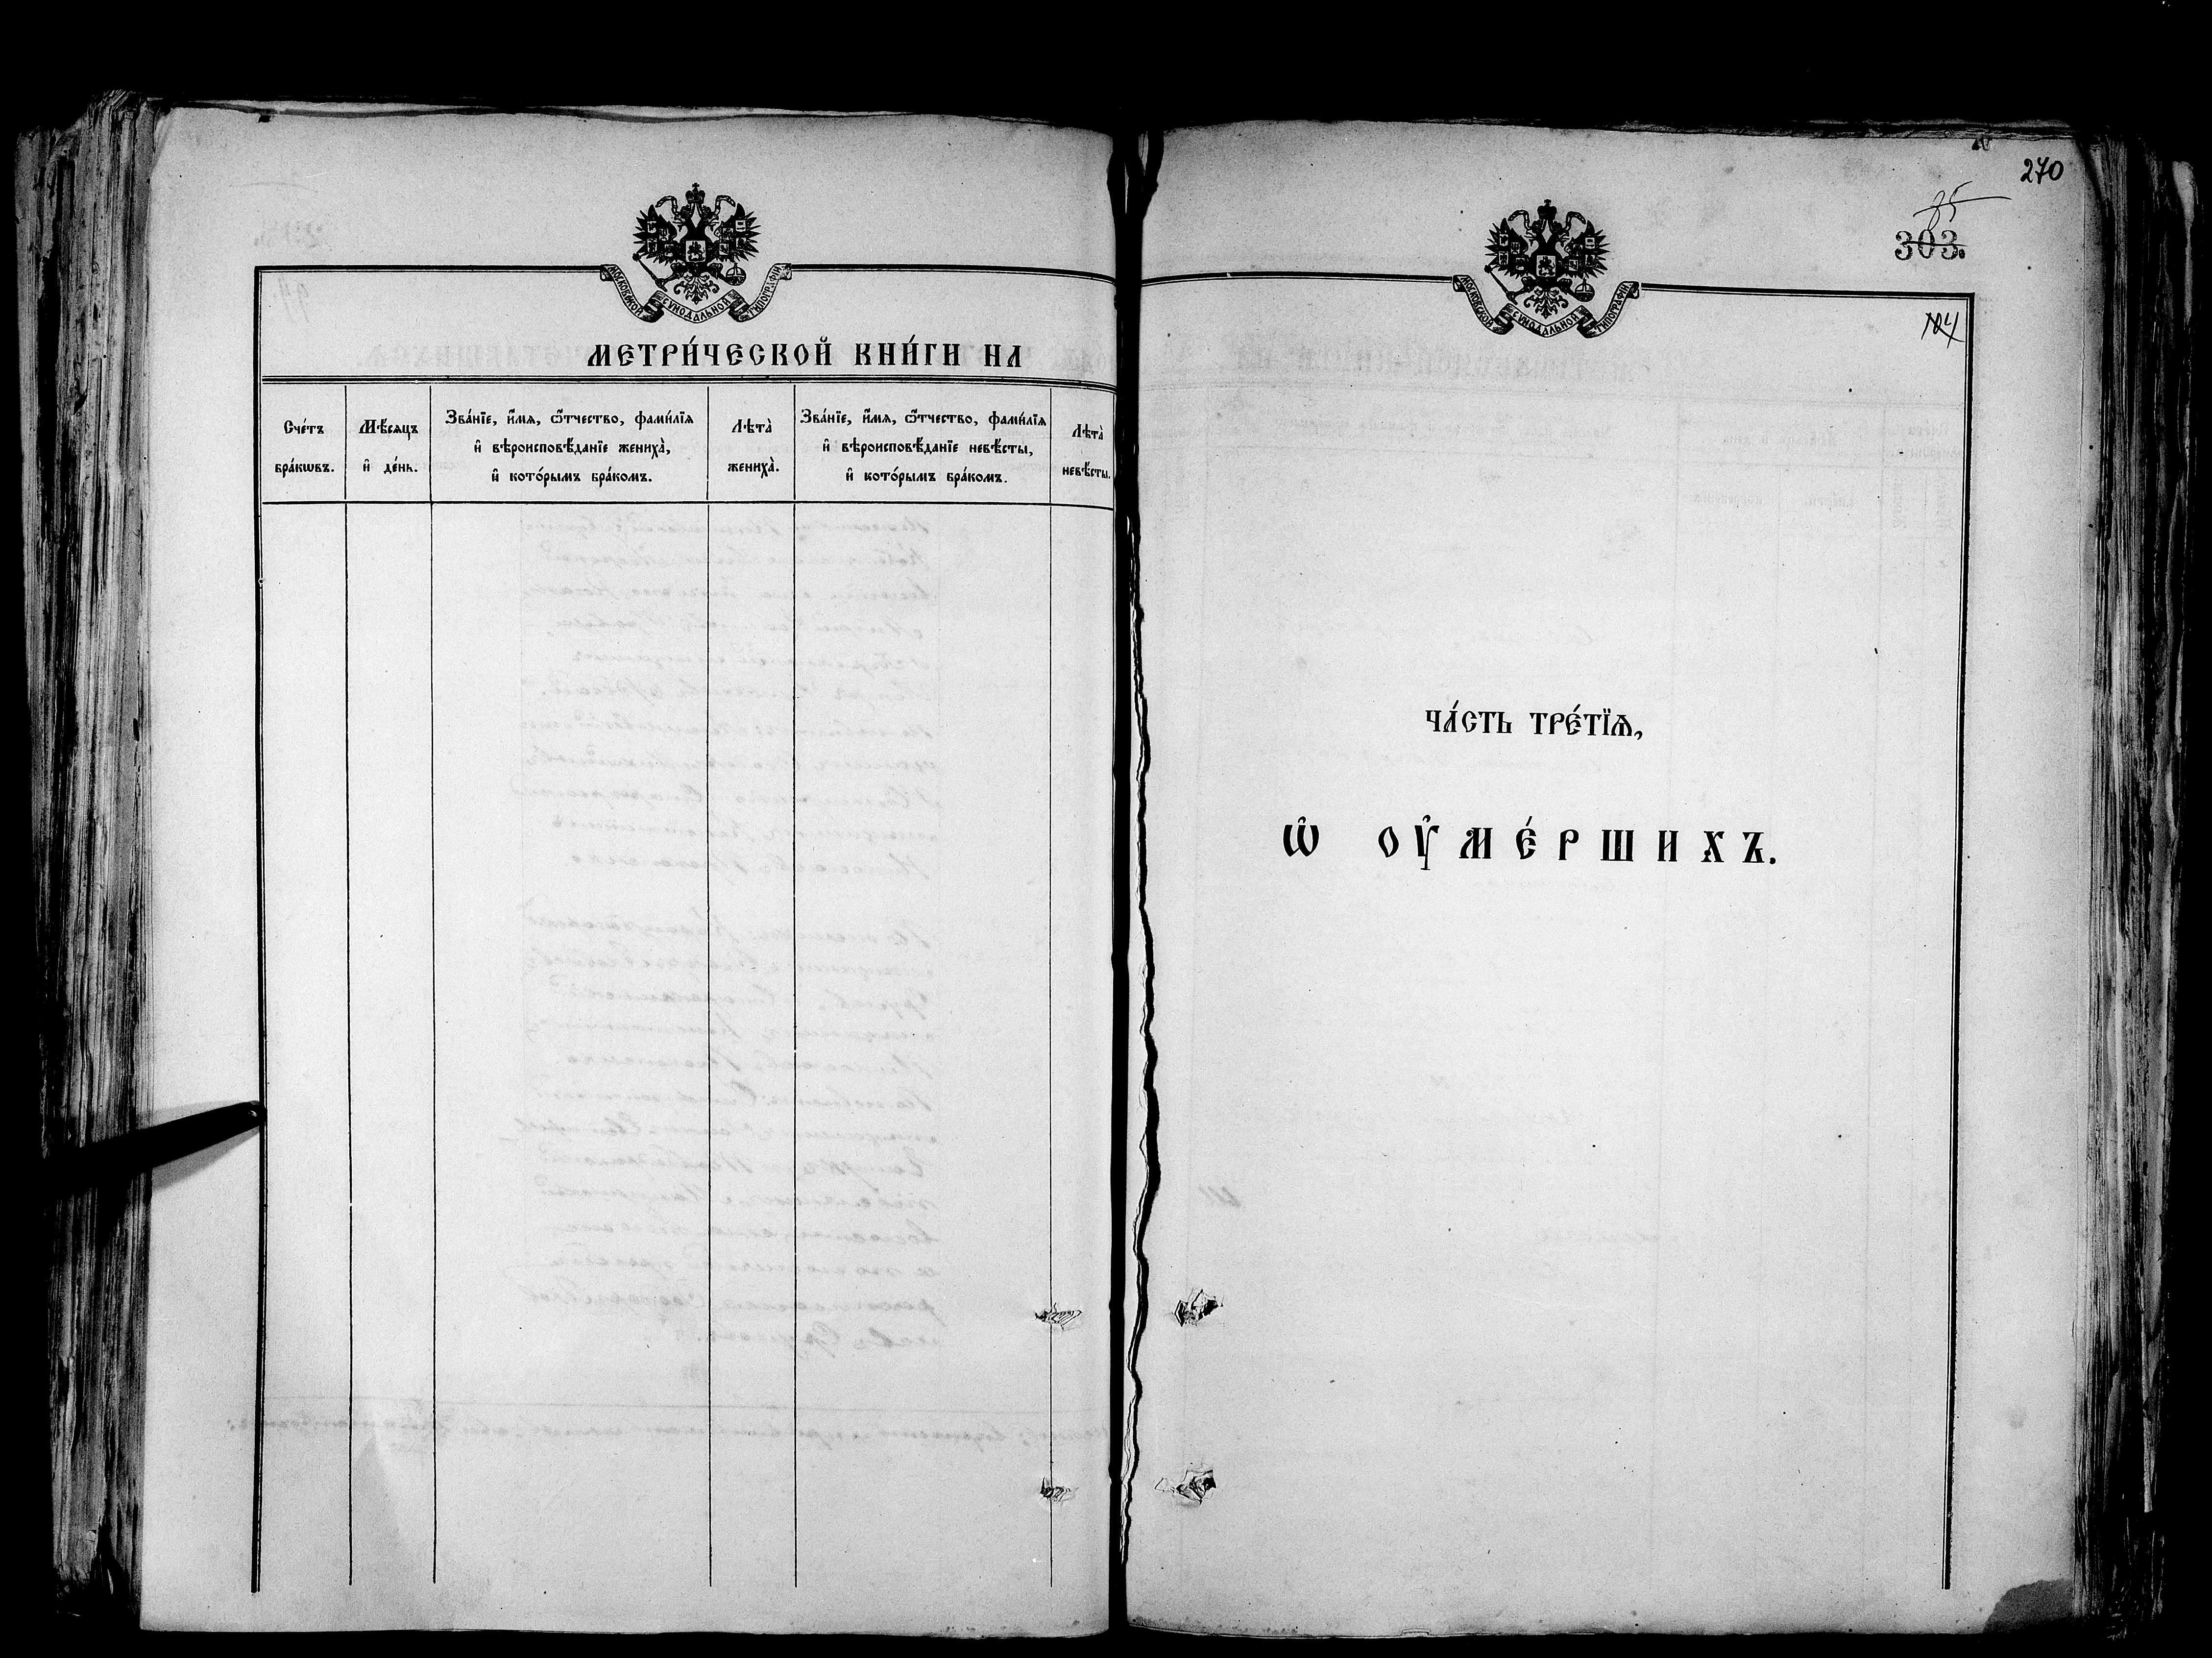 МОСКОВСКОЙ СѴНОДАЛЬНОЙ ТИПОГРАФІИ
МЕТРИ́ЧЕСКОЙ КНИ́ГИ НА
Сче́тъ
бра́кѡвъ.
Мѣ́сяцъ
и҆ де́нь.
Зва́нїе, и҆́мѧ, ѻ҆́тчество, фами́лїѧ
и҆ вѣроисповѣ́данїе жениха̀,
и҆ кото́рымъ бра́комъ.
Лѣта̀
жениха̀.
Зва́нїе, и҆́мѧ, ѻ҆́тчество, фами́лїѧ
и҆ вѣроисповѣ́данїе невѣ́сты,
и҆ кото́рымъ бра́комъ.
Лѣта̀
невѣ́сты.
270
85
303.
104
МОСКОВСКОЙ СѴНОДАЛЬНОЙ ТИПОГРАФІИ
ЧА́СТЬ ТРЕ́ТЇѦ,
Ѡ҆ ОУ҆МЕ́РШИХЪ.